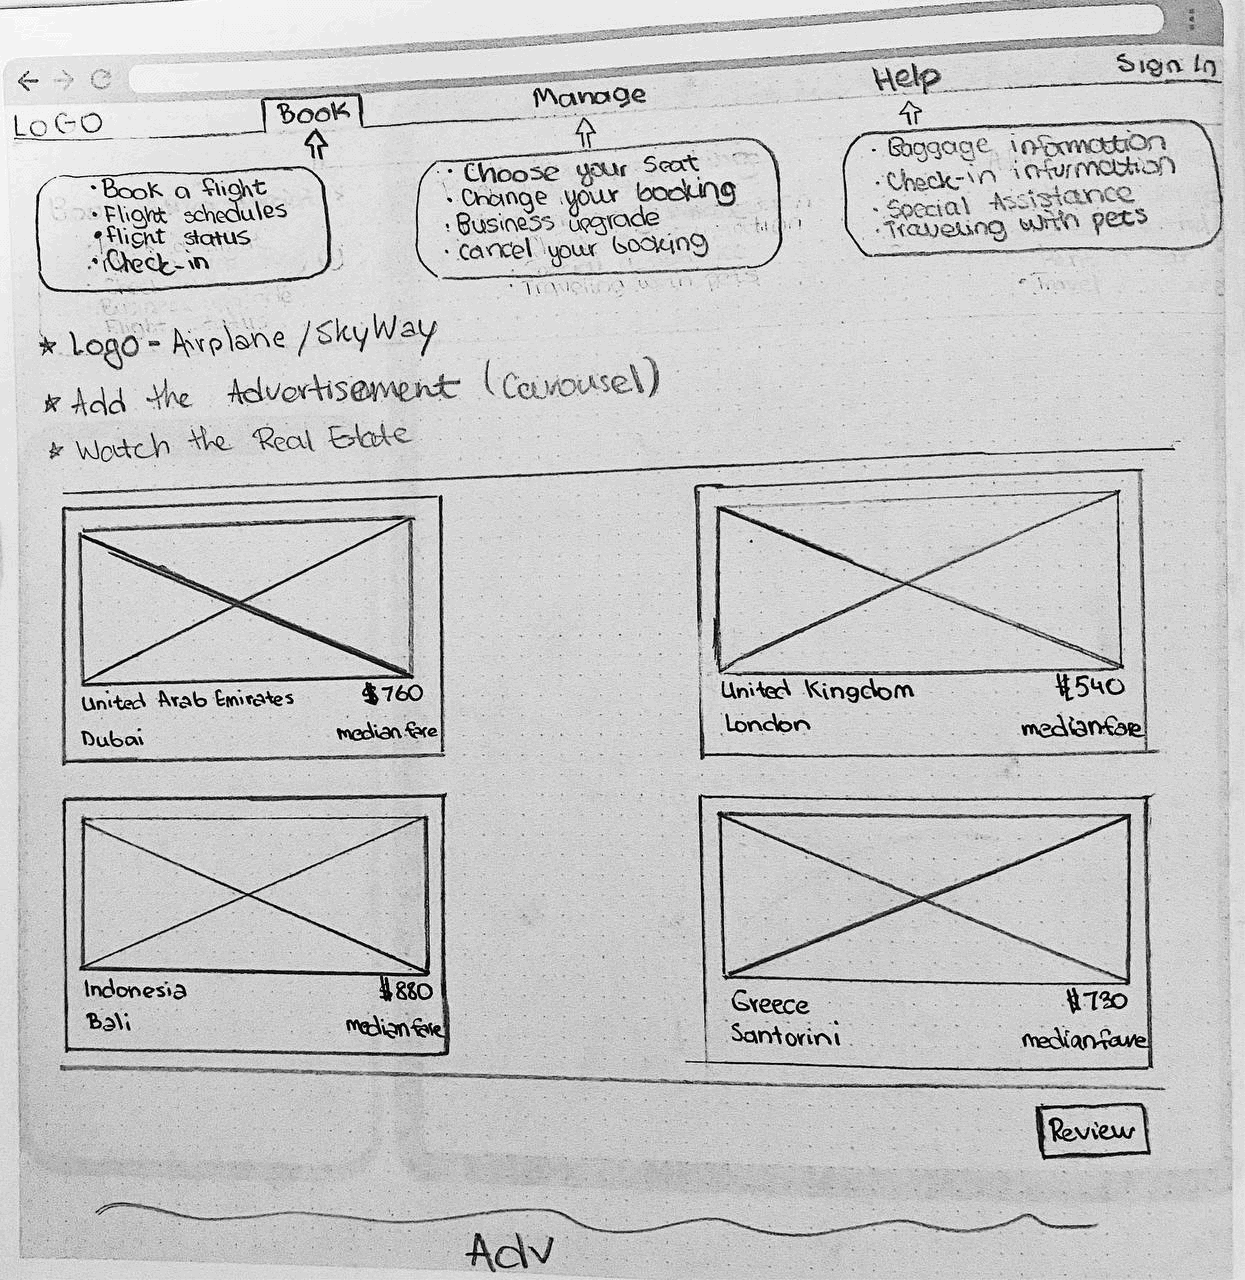 Sign In
Help
Manage
Book
LOGO
• Book a flight
• Flight schedules
• flight status
• Check-in
• Choose your Seat
• Change your booking
• Business upgrade
• Cancel your booking
• Baggage information
• Check-in information
• Special Assistance
• Traveling with pets
Traveling with pets
Travel
* Logo - Airplane / SkyWay
* Add the Advertisement (Carousel)
* Watch the Real Estate
United Arab Emirates $760
Dubai median fare
United Kingdom $540
London median fare
Indonesia $880
Bali median fare
Greece $730
Santorini median fare
Review
Adv